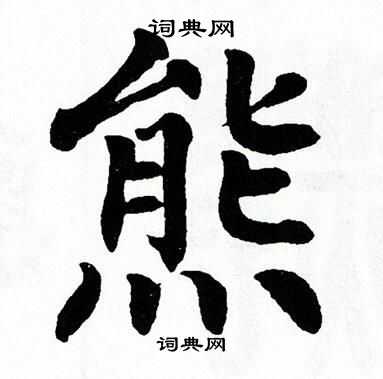 词典网
熊
词典网